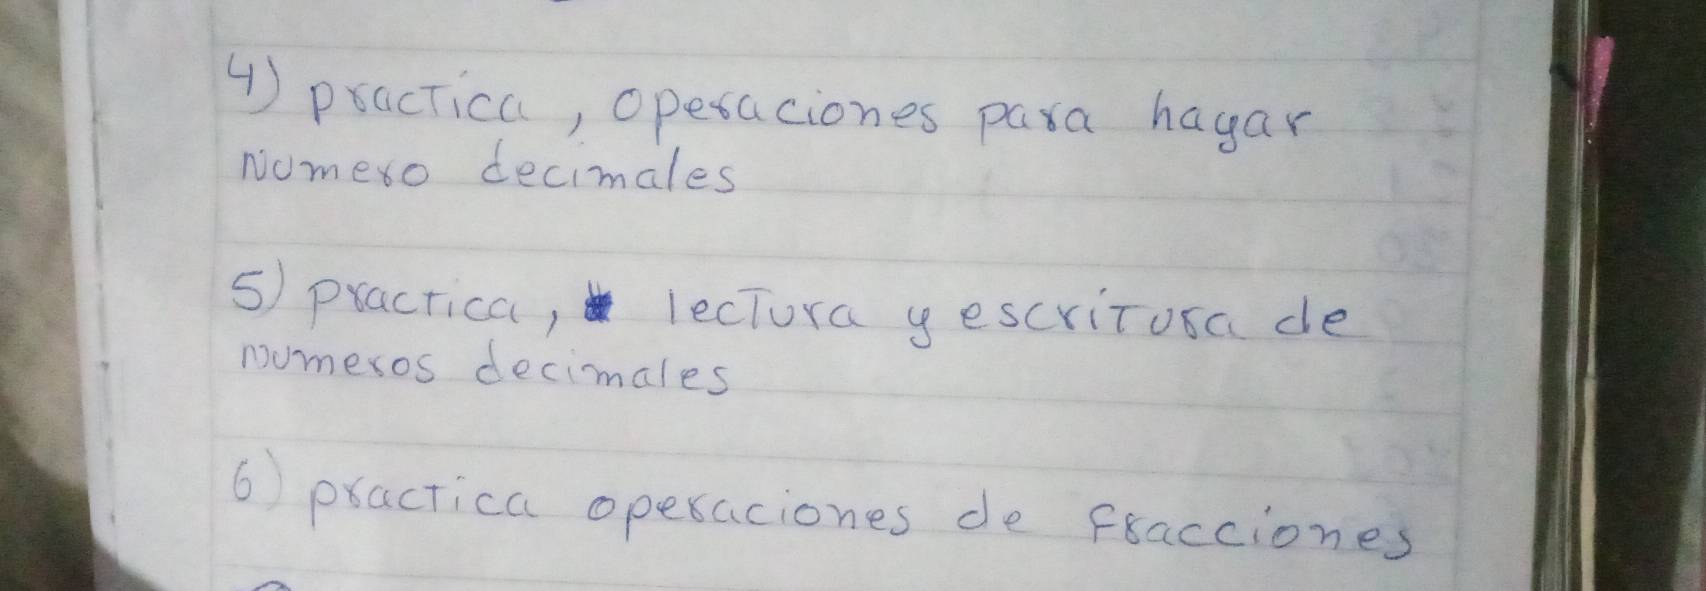 4) practica, operaciones para hagar
Numero decimales
5) practica, lectura y escritura de
numeros decimales
6) practica operaciones de fracciones